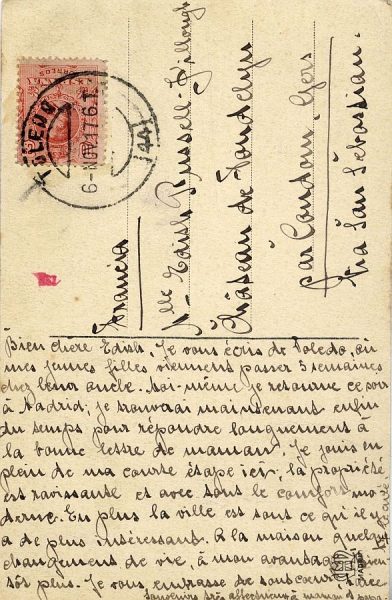 TOLEDO
6-NOV 17.6.T
(44)
Francia
Mlle Edith Russell-Killough
Château de
par Condom, Gers
Via San Sébastian.
Bien chère Edith, Je vous écris de Toledo, où
mes jeunes filles viennent passer 3 semaines
chez leur oncle. Moi-même je retourne ce soir
à Madrid; je trouverai maintenant enfin
du temps pour répondre longuement à
la bonne lettre de maman. Je jouis en
plein de ma courte étape ici; la propriété
est ravissante et avec tout le confort mo-
derne. En plus la ville est tout ce qu'il y
a de plus intéressant. A la maison quelque
changement de vie, à mon avantage, bien-
tôt plus. Je vous embrasse de tout coeur, avec
souvenirs très affectueux à maman et papa